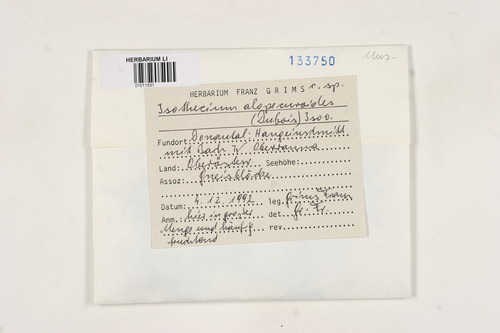 HERBARIUM LI
133750
Mus.
01011531
HERBARIUM FRANZ GRIMS c. sp.
Isothecium alopecuroides
(Dubois) Isov.
Fundort: Donautal: Hangeinschnitt
mit Bach W Oberranna
Land: Oberösterr. Seehöhe:
Assoz: Gneisblöcke
Datum: 4.12.1992 leg. Grims Franz
Anm. hier in großer det. Gr. Fr.
Menge und häufig rev.
fruchtend